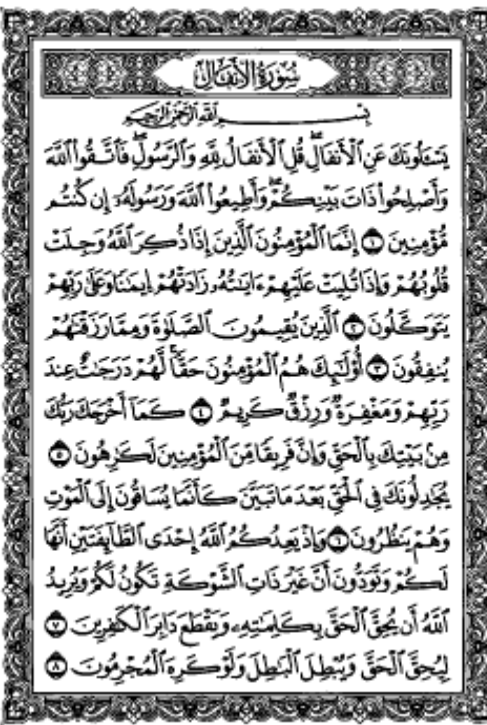 سُورَةُ الْأَنفَالِ
بِسْمِ اللَّهِ الرَّحْمَٰنِ الرَّحِيمِ
يَسْـَٔلُونَكَ عَنِ ٱلْأَنفَالِ ۖ قُلِ ٱلْأَنفَالُ لِلَّهِ وَٱلرَّسُولِ ۖ فَٱتَّقُوا۟ ٱللَّهَ
وَأَصْلِحُوا۟ ذَاتَ بَيْنِكُمْ ۖ وَأَطِيعُوا۟ ٱللَّهَ وَرَسُولَهُۥٓ إِن كُنتُم
مُّؤْمِنِينَ ١ إِنَّمَا ٱلْمُؤْمِنُونَ ٱلَّذِينَ إِذَا ذُكِرَ ٱللَّهُ وَجِلَتْ
قُلُوبُهُمْ وَإِذَا تُلِيَتْ عَلَيْهِمْ ءَايَٰتُهُۥ زَادَتْهُمْ إِيمَٰنًا وَعَلَىٰ رَبِّهِمْ
يَتَوَكَّلُونَ ٢ ٱلَّذِينَ يُقِيمُونَ ٱلصَّلَوٰةَ وَمِمَّا رَزَقْنَٰهُمْ
يُنفِقُونَ ٣ أُو۟لَٰٓئِكَ هُمُ ٱلْمُؤْمِنُونَ حَقًّا ۚ لَّهُمْ دَرَجَٰتٌ عِندَ
رَبِّهِمْ وَمَغْفِرَةٌ وَرِزْقٌ كَرِيمٌ ٤ كَمَآ أَخْرَجَكَ رَبُّكَ
مِنۢ بَيْتِكَ بِٱلْحَقِّ وَإِنَّ فَرِيقًا مِّنَ ٱلْمُؤْمِنِينَ لَكَٰرِهُونَ ٥
يُجَٰدِلُونَكَ فِى ٱلْحَقِّ بَعْدَ مَا تَبَيَّنَ كَأَنَّمَا يُسَاقُونَ إِلَى ٱلْمَوْتِ
وَهُمْ يَنظُرُونَ ٦ وَإِذْ يَعِدُكُمُ ٱللَّهُ إِحْدَى ٱلطَّآئِفَتَيْنِ أَنَّهَا
لَكُمْ وَتَوَدُّونَ أَنَّ غَيْرَ ذَاتِ ٱلشَّوْكَةِ تَكُونُ لَكُمْ وَيُرِيدُ
ٱللَّهُ أَن يُحِقَّ ٱلْحَقَّ بِكَلِمَٰتِهِۦ وَيَقْطَعَ دَابِرَ ٱلْكَٰفِرِينَ ٧
لِيُحِقَّ ٱلْحَقَّ وَيُبْطِلَ ٱلْبَٰطِلَ وَلَوْ كَرِهَ ٱلْمُجْرِمُونَ ٨